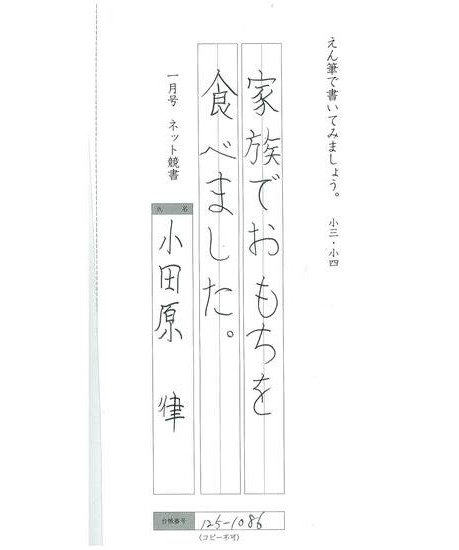 えん筆で書いてみましょう。 小三・小四
家族でおもちを
食べました。
一月号 ネット競書
氏名
小田原 律
台帳番号
125-1086
(コピー不可)